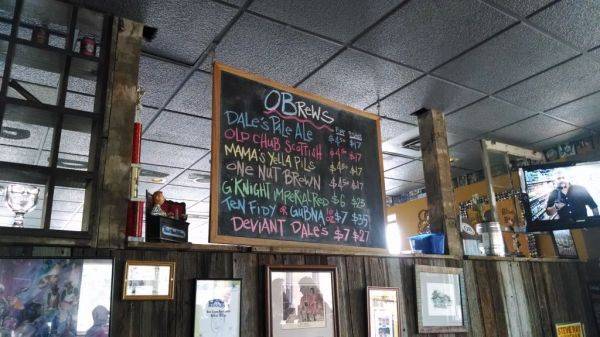 OBREWS
DALE'S PALE ALE $17
OLD CHUB SCOTTISH $17
MAMA'S YELLA PILS $17
ONE NUT BROWN $17
G'KNIGHT IMPERIAL RED $6 $23
TEN FIDY & GUBNA $7 $35
DEVIANT DALE'S $7 $27